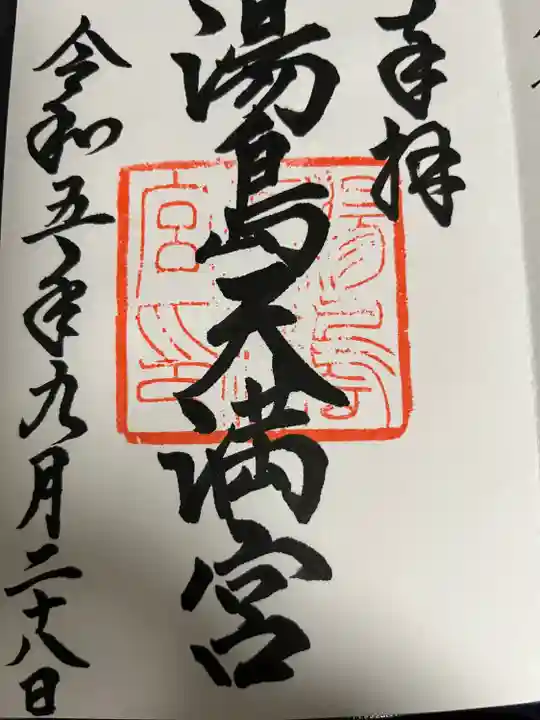 奉拝
湯島天満宮
令和五年九月二十八日